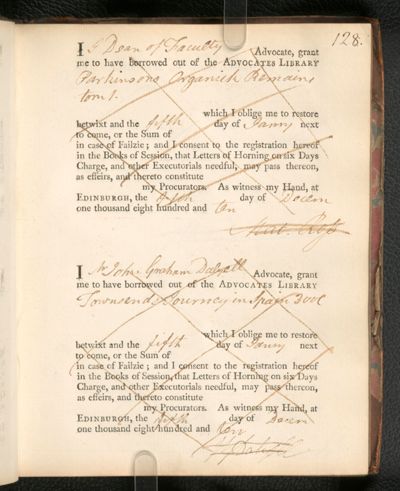 128.
I Dean of Faculty Advocate, grant
me to have borrowed out of the ADVOCATES LIBRARY
Parkinsons Organick Remains
tom 1.
which I oblige me to restore
betwixt and the fifth day of Janry next
to come, or the Sum of
in case of Failzie; and I consent to the registration hereof
in the Books of Session, that Letters of Horning on six Days
Charge, and other Executorials needful, may pass thereon,
as effeirs, and thereto constitute
my Procurators. As witness my Hand, at
EDINBURGH, the fifth day of Decem
one thousand eight hundred and ten
I Mr John Graham Dalyell Advocate, grant
me to have borrowed out of the ADVOCATES LIBRARY
Townsends Journey in Spain 3 vols
which I oblige me to restore
betwixt and the fifth day of Janry next
to come, or the Sum of
in case of Failzie; and I consent to the registration hereof
in the Books of Session, that Letters of Horning on six Days
Charge, and other Executorials needful, may pass thereon,
as effeirs, and thereto constitute
my Procurators. As witness my Hand, at
EDINBURGH, the fifth day of Decem
one thousand eight hundred and ten